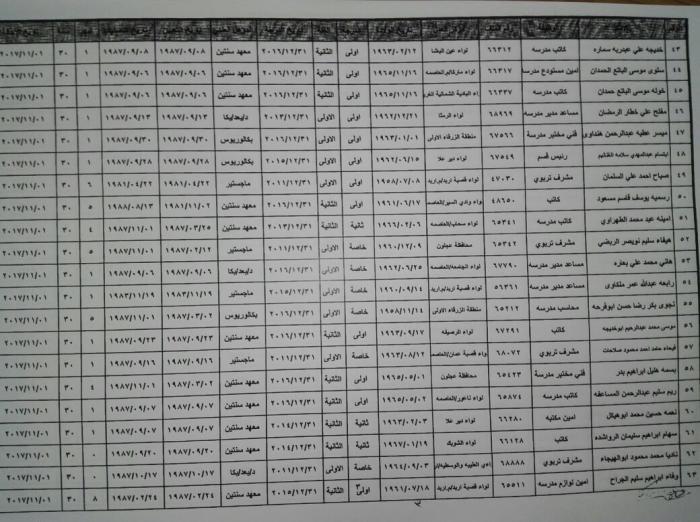 ٤٣ خديجه علي عبدربه سماره كاتب مدرسه ٦٦٣١٢ لواء عين الباشا ١٩٦٣/٠٢/١٢ اولى الثانية ٢٠١٦/١٢/٣١ معهد سنتين ١٩٨٧/٠٩/٠٨ ١٩٨٧/٠٩/٠٨ ١ ٣٠ ٢٠١٧/١١/٠١
٤٤ سلوى موسى البالع الحمدان امين مستودع مدرسه ٦٦٣١٧ لواء ماركا/العاصمه ١٩٦٥/١١/١٦ اولى الثانية ٢٠١٦/١٢/٣١ معهد سنتين ١٩٨٧/٠٩/٠٦ ١٩٨٧/٠٩/٠٦ ١ ٣٠ ٢٠١٧/١١/٠١
٤٥ خوله موسى البالع حمدان كاتب مدرسه ٦٦٣٣٧ البادية الشمالية ١٩٦٥/١١/١٦ اولى الثانية ٢٠١٦/١٢/٣١ معهد سنتين ١٩٨٧/٠٩/٠٦ ١٩٨٧/٠٩/٠٦ ١ ٣٠ ٢٠١٧/١١/٠١
٤٦ مفلح علي خطار الرمضان مساعد مدير مدرسه ٦٨٩٦٩ لواء الرمثا ١٩٦٢/١٢/٢١ اولى الاولى ٢٠١٣/١٢/٣١ ١٩٨٧/٠٩/١٣ ١٩٨٧/٠٩/١٣ ١ ٣٠ ٢٠١٧/١١/٠١
٤٧ ميسر عطيه عبدالرحمن هنداوي فني مختبر مدرسة ٦٧٥٦٦ منطقة الزرقاء الاولى ١٩٦٣/٠١/٠١ اولى الاولى ٢٠١٦/١٢/٣١ بكالوريوس ١٩٨٧/٠٩/٣٠ ١٩٨٧/٠٩/٣٠ ١ ٣٠ ٢٠١٧/١١/٠١
٤٨ ابتسام عبدالمهدي سلامه رئيس قسم ٦٧٥٤٩ لواء دير علا ١٩٦٢/٠٦/١٥ اولى الاولى ٢٠١٥/١٢/٣١ بكالوريوس ١٩٨٧/٠٩/٢٨ ١٩٨٧/٠٩/٢٨ ١ ٣٠ ٢٠١٧/١١/٠١
٤٩ صباح احمد علي السلمان مشرف تربوي ٤٧٠٣٠ لواء قصبة اربد/اربد ١٩٥٨/٠٧/٠٨ الاولى ٢٠١١/١٢/٣١ ماجستير ١٩٨١/٠٤/٢٢ ١٩٨١/٠٤/٢٢ ٦ ٣٠ ٢٠١٧/١١/٠١
٥٠ رسميه يوسف قاسم مسعود كاتب ٤٨٦٥٠ لواء وادي السير/العاصمه ١٩٦١/٠٦/١٧ الثانية ٢٠١٦/١٢/٣١ معهد سنتين ١٩٨١/١١/٠٢ ١٩٨٨/٠٨/١٣ ٥ ٣٠ ٢٠١٧/١١/٠١
٥١ امينه عبد محمد الطهراوي كاتب مدرسه ٦٥٣٤١ لواء سحاب/العاصمه ١٩٦٦/٠٢/٠٦ ثانية الثانية ٢٠١٣/١٢/٣١ معهد سنتين ١٩٨٧/٠٣/٢٥ ١٩٨٧/١١/٠١ ٤ ٣٠ ٢٠١٧/١١/٠١
٥٢ هيفاء سليم نويصر الربضي مشرف تربوي ٦٥٣٤٢ محافظة عجلون ١٩٦٠/١٢/٠٩ خاصة الاولى ٢٠١١/١٢/٣١ ماجستير ١٩٨٧/٠٢/١٢ ١٩٨٧/١١/٠١ ٥ ٣٠ ٢٠١٧/١١/٠١
٥٣ هاني محمد علي مساعد مدير مدرسه ٦٧٧٩٠ لواء الجامعه/العاصمه ١٩٦٢/٠٦/٢٥ خاصة الاولى ٢٠١٦/١٢/٣١ ١٩٨٧/٠٩/٠٦ ١٩٨٧/٠٩/٠٦ ١ ٣٠ ٢٠١٧/١١/٠١
٥٤ رابعه عبدالله عمر ملكاوي مساعد مدير مدرسه ٥٦٣٦١ لواء قصبة اربد/اربد ١٩٦٠/٠٩/١٤ خاصة الاولى ٢٠١٥/١٢/٣١ ماجستير ١٩٨٣/١١/١٩ ١٩٨٣/١١/١٩ ٣٠ ٢٠١٧/١١/٠١
٥٥ نجوى بكر رضا حسن ابوفرحه محاسب مدرسه ٦٥٢١٢ منطقة الزرقاء الاولى ١٩٥٨/١١/١٤ خاصة الاولى ٢٠١٦/١٢/٣١ بكالوريوس ١٩٨٧/٠٣/٠٢ ١٩٨٧/١١/٠١ ٥ ٣٠ ٢٠١٧/١١/٠١
٥٦ موسى محمد عبدالرحيم ابوخديجه كاتب ٦٧٢٩١ لواء الرصيفه ١٩٦٣/٠٩/١٧ اولى الثانية ٢٠١٦/١٢/٣١ معهد سنتين ١٩٨٧/٠٩/٢٣ ١٩٨٧/٠٩/٢٣ ١ ٣٠ ٢٠١٧/١١/٠١
٥٧ فيحاء محمد احمد محمود صلاحات مشرف تربوي ٦٨٠٧٢ لواء قصبة عمان/العاصمه ١٩٦٣/٠٨/١٢ خاصة الاولى ٢٠١١/١٢/٣١ ماجستير ١٩٨٧/٠٩/١٦ ١٩٨٧/٠٩/١٦ ١ ٣٠ ٢٠١٧/١١/٠١
٥٨ بسمه خليل ابراهيم بدر فني مختبر مدرسة ٦٥٤٢٣ محافظة عجلون ١٩٦٥/٠٥/٠١ اولى الثانية ٢٠١٦/١٢/٣١ معهد سنتين ١٩٨٧/٠٣/٠٢ ١٩٨٧/١١/٠١ ٤ ٣٠ ٢٠١٧/١١/٠١
٥٩ ريم سليم عبدالرحمن المساعفه كاتب مدرسه ٦٥٨٧٤ لواء ناعور/العاصمه ١٩٦٥/٠٥/٠١ اولى الثانية ٢٠١٦/١٢/٣١ معهد سنتين ١٩٨٧/٠٩/٠٧ ١٩٨٧/٠٩/٠٧ ١ ٣٠ ٢٠١٧/١١/٠١
٦٠ نعمه حسين محمد ابوهيكل امين مكتبه ٦٦٢٨٠ لواء دير علا ١٩٦٣/٠٥/٠٢ ثانية الثانية ٢٠١٤/١٢/٣١ معهد سنتين ١٩٨٧/٠٩/٠٧ ١٩٨٧/٠٩/٠٧ ١ ٣٠ ٢٠١٧/١١/٠١
٦١ سهام ابراهيم سليمان الرواشده كاتب ٦٦١٢٨ لواء الشوبك ١٩٦٧/٠١/١٩ ثانية الثانية ٢٠١٤/١٢/٣١ معهد سنتين ١٩٨٧/٠٩/٢٠ ١٩٨٧/٠٩/٢٠ ٠ ٣٠ ٢٠١٧/١١/٠١
٦٢ ناديا محمد محمود ابوالهيجاء مشرف تربوي ٦٨٨٨٨ الطيبه والوسطيه ١٩٦٤/٠٩/٠٣ خاصة الاولى ٢٠١١/١٢/٣١ ١٩٨٧/١٠/١٧ ١٩٨٧/١٠/١٧ ٠ ٣٠ ٢٠١٧/١١/٠١
٦٣ وفاء ابراهيم سليم الجراح امين لوازم مدرسه ٦٥٥١١ لواء قصبة اربد/اربد ١٩٦١/٠٧/١٨ اولى الثانية ٢٠١٥/١٢/٣١ معهد سنتين ١٩٨٧/٠٢/٢٤ ١٩٨٧/٠٢/٢٤ ٨ ٣٠ ٢٠١٧/١١/٠١